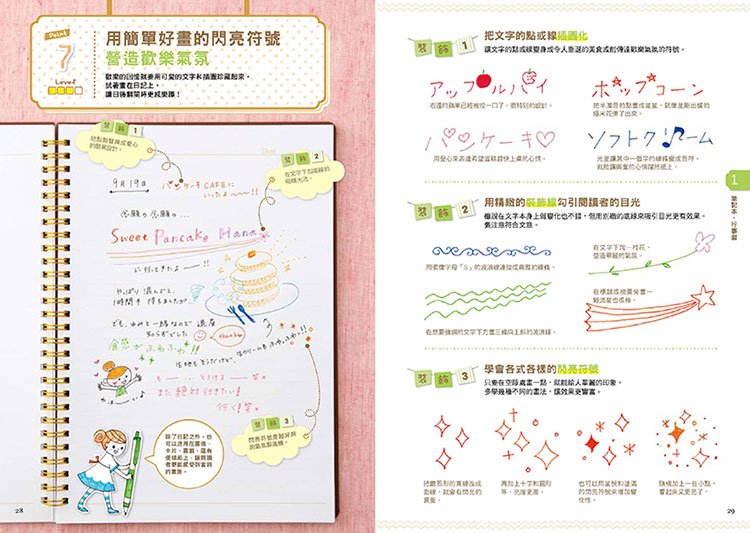 Point
7
Level
用簡單好畫的閃亮符號
營造歡樂氣氛
歡樂的回憶就要用可愛的文字和插圖珍藏起來,
試著畫在日記上,
讓日後翻閱時更成樂趣!
裝飾 1
把點點替換成愛心
的簡單設計。
裝飾 2
在文字下加底線的
Date
9月19日
パンケーキCAFEに
いったよ〜!!
念願の念願の…
Sweet Pancake Hana
に行ってきたよー!!
やっぱり混んでて、
1時間半待ちましたが
でも、ゆめと一緒なので
thanks
食感がふわふわ!!
また絶対行きたい!
行く!笑
裝飾 3
閃亮符號是超好用
的氣氛製造機。
除了日記之外,也
可以活用在書信、
卡片、書籤,還有
便條紙上,讓閱讀
者都能感受到當時
的喜悅。
28
裝飾 1
把文字的點或線插圖化
讓文字的點或線變身成令人垂涎的美食或能傳達歡樂氣氛的符號。
アップルパイ
右邊的蘋果已經被咬一口了,很特別的設計。
ポップコーン
把半濁音的點畫成星星,就像是剛出爐的
爆米花彈了出來。
パンケーキ
用愛心來表達希望鬆餅趕快上桌的心情。
ソフトクリーム
光是讓其中一個字的線條變成音符,
就能讓興奮的心情躍然紙上。
裝飾 2
用精緻的裝飾線勾引閱讀者的目光
雖說在文字本身上做變化也不錯,但用別緻的底線來吸引目光更有效果。
要注意符合文意。
用很像字母「S」的波浪線連接成典雅的線條。
在文字下加一枝花,
營造華麗的氣氛。
在想要強調的文字下方畫三條向上斜的波浪線。
在標題或摘要旁畫一
顆流星也很棒。
裝飾 3
學會各式各樣的閃亮符號
只要在空隙處畫一點,就能給人華麗的印象。
多學幾種不同的畫法,讓效果更豐富。
把鑽石形的直線改成
曲線,就會有閃光的
感覺。
再加上十字和圓形
等,亮度更高。
也可以用星號和塗滿
的閃亮符號來增加變
化性。
隨機加上一些小點,
看起來又更亮了。
1
筆記本、行事曆
29